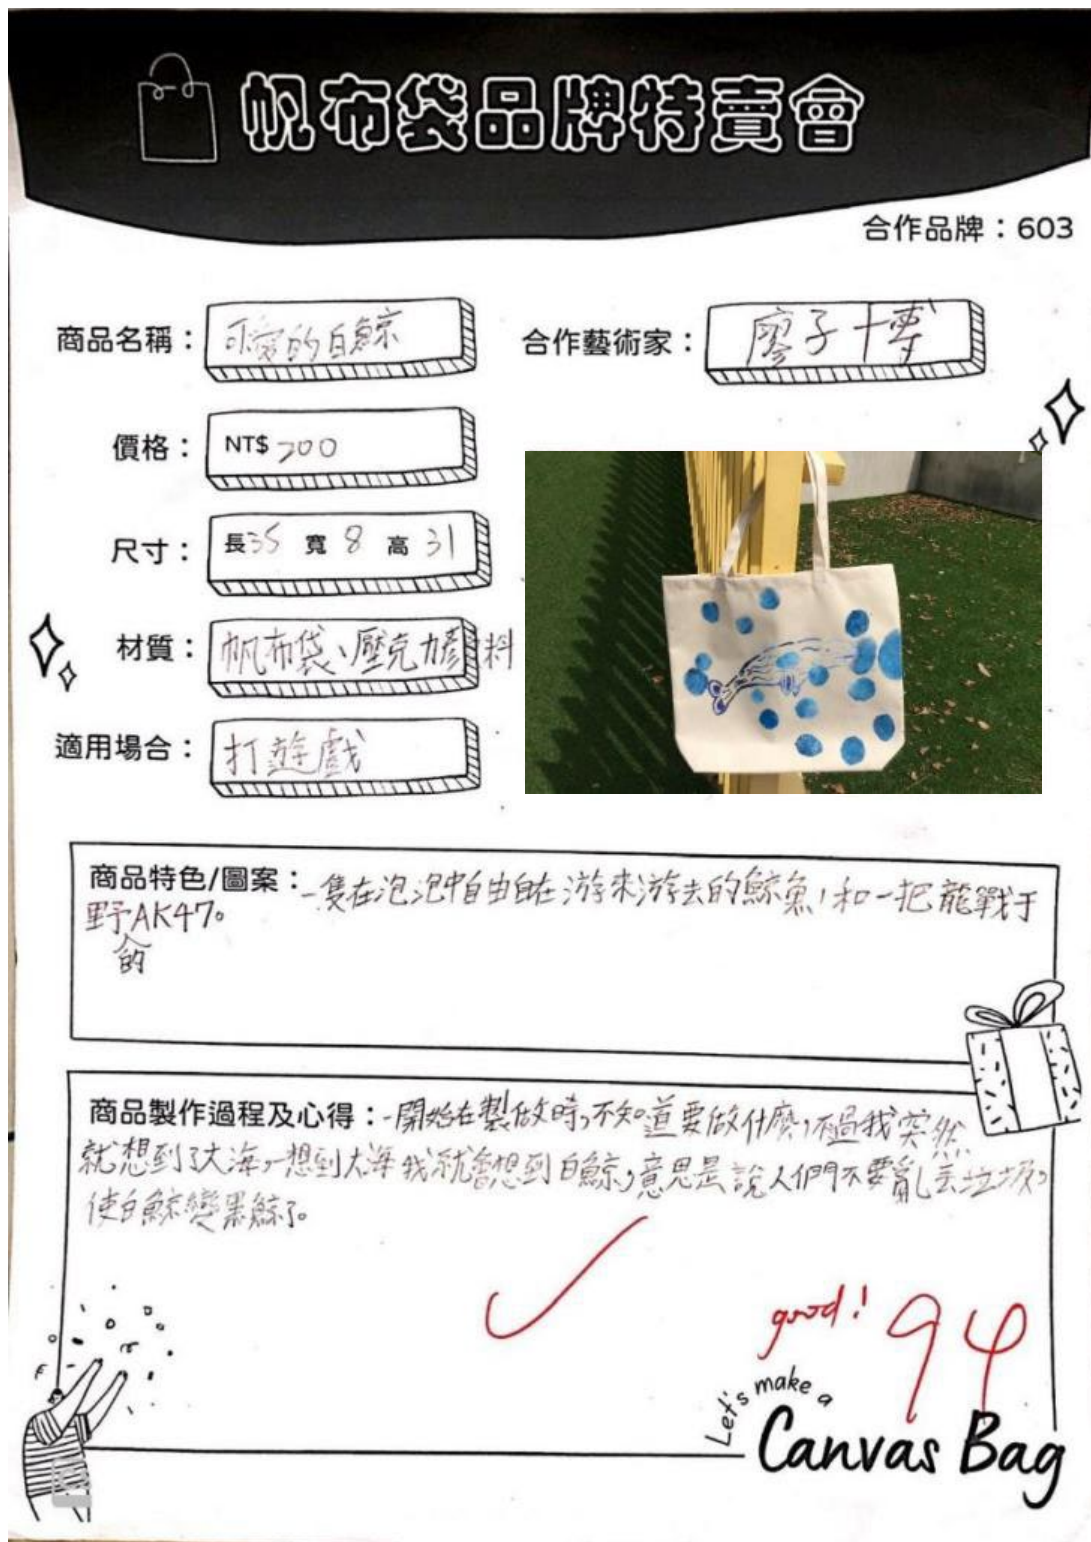 帆布袋品牌特賣會
合作品牌：603
商品名稱：可愛的白鯨
合作藝術家：廖子博
價格：NT$ 200
尺寸：長35 寬 8 高 31
材質：帆布袋、壓克力顏料
適用場合：打遊戲
商品特色/圖案：一隻在泡泡中自由自在游來游去的鯨魚，和一把龍戰于
野AK47。
的
商品製作過程及心得：一開始在製做時，不知道要做什麼，不過我突然
就想到了大海，一想到大海我就會想到白鯨，意思是說人們不要亂丟垃圾，
使白鯨變黑鯨了。
good! 94
Let's make a
Canvas Bag